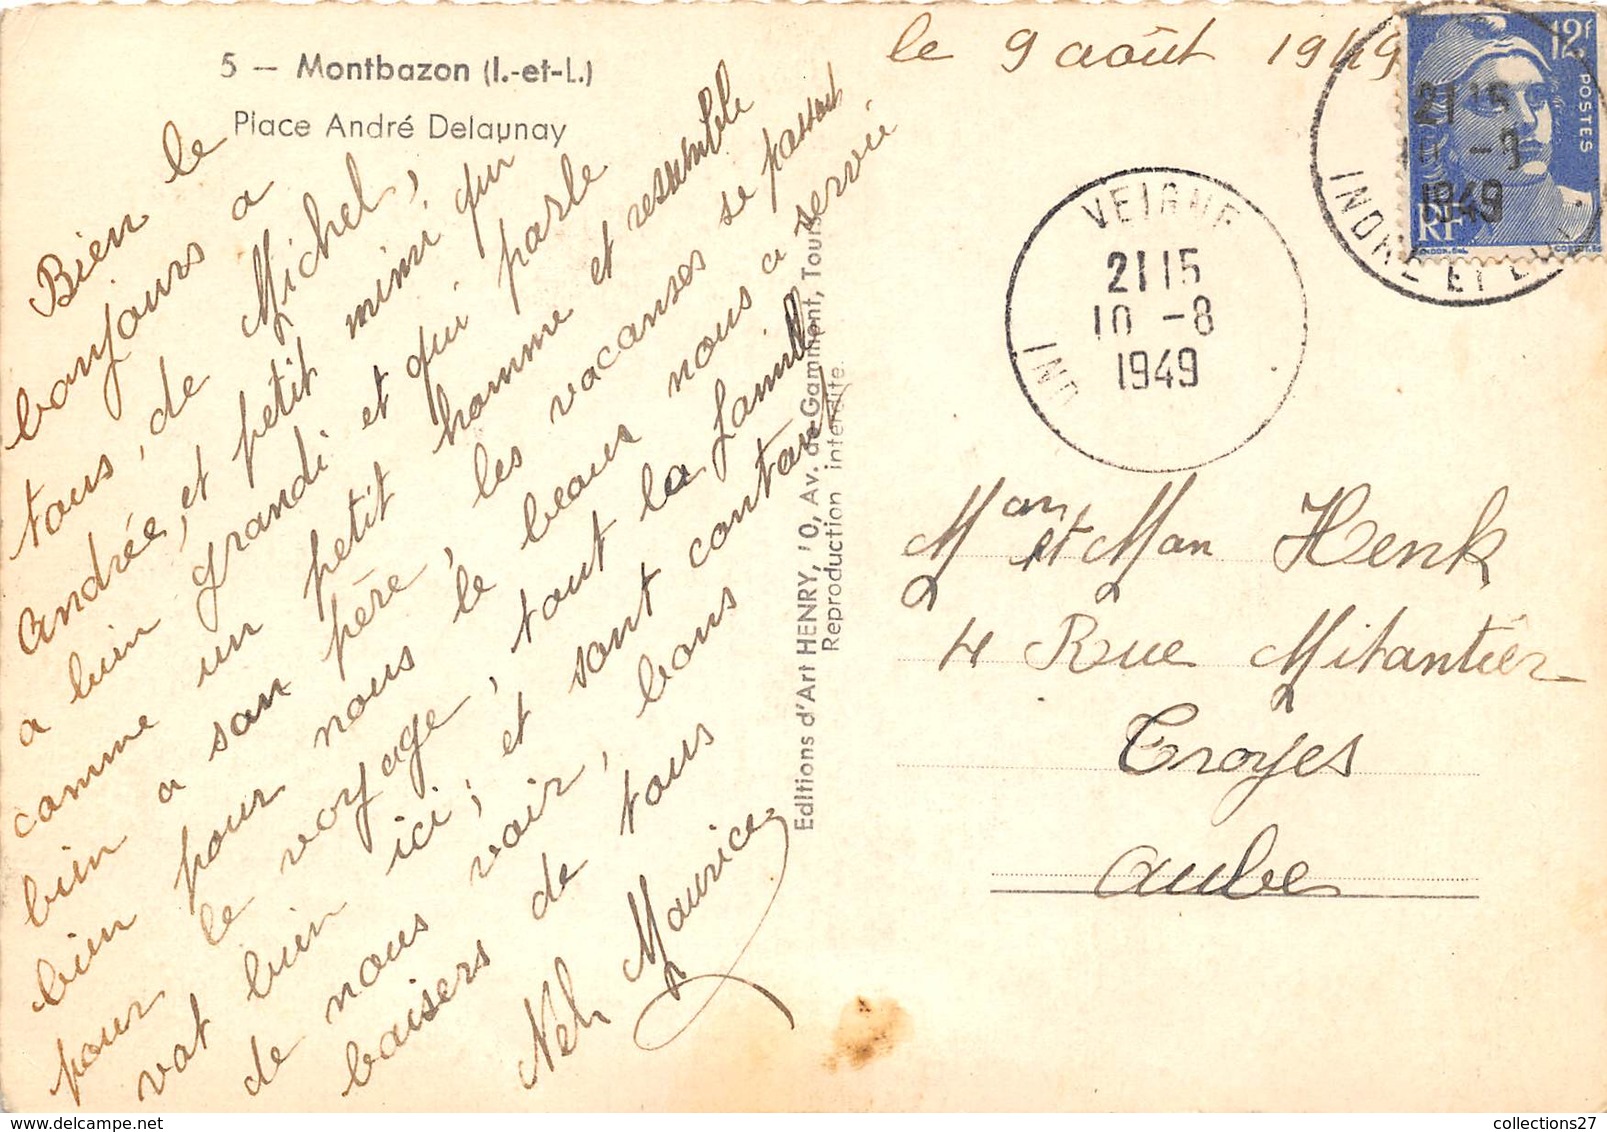 5 — Montbazon (I.-et-L.)
Place André Delaunay
le 9 août 1949
12f
POSTES
RF
21 15
-9
1949
INDRE ET LOIRE
VEIGNE
21 15
10 -8
1949
IND
Bien le
bonjours a
tous, de Michel,
andrée, et petit mimi qui
a bien grandi et qui parle
comme un petit homme et ressemble
bien a son père, les vacanses se passent
bien pour nous le beaus nous a servie
pour le voyage, tout la famille
vat bien ici; et sont contant
de nous voir, bons
baisers de tous
Neh Maurice
Editions d'Art HENRY, 10, Av. de Gammont, Tours
Reproduction interdite.
Man et Man Henk
4 Rue Mitantier
Troyes
aube
collections27